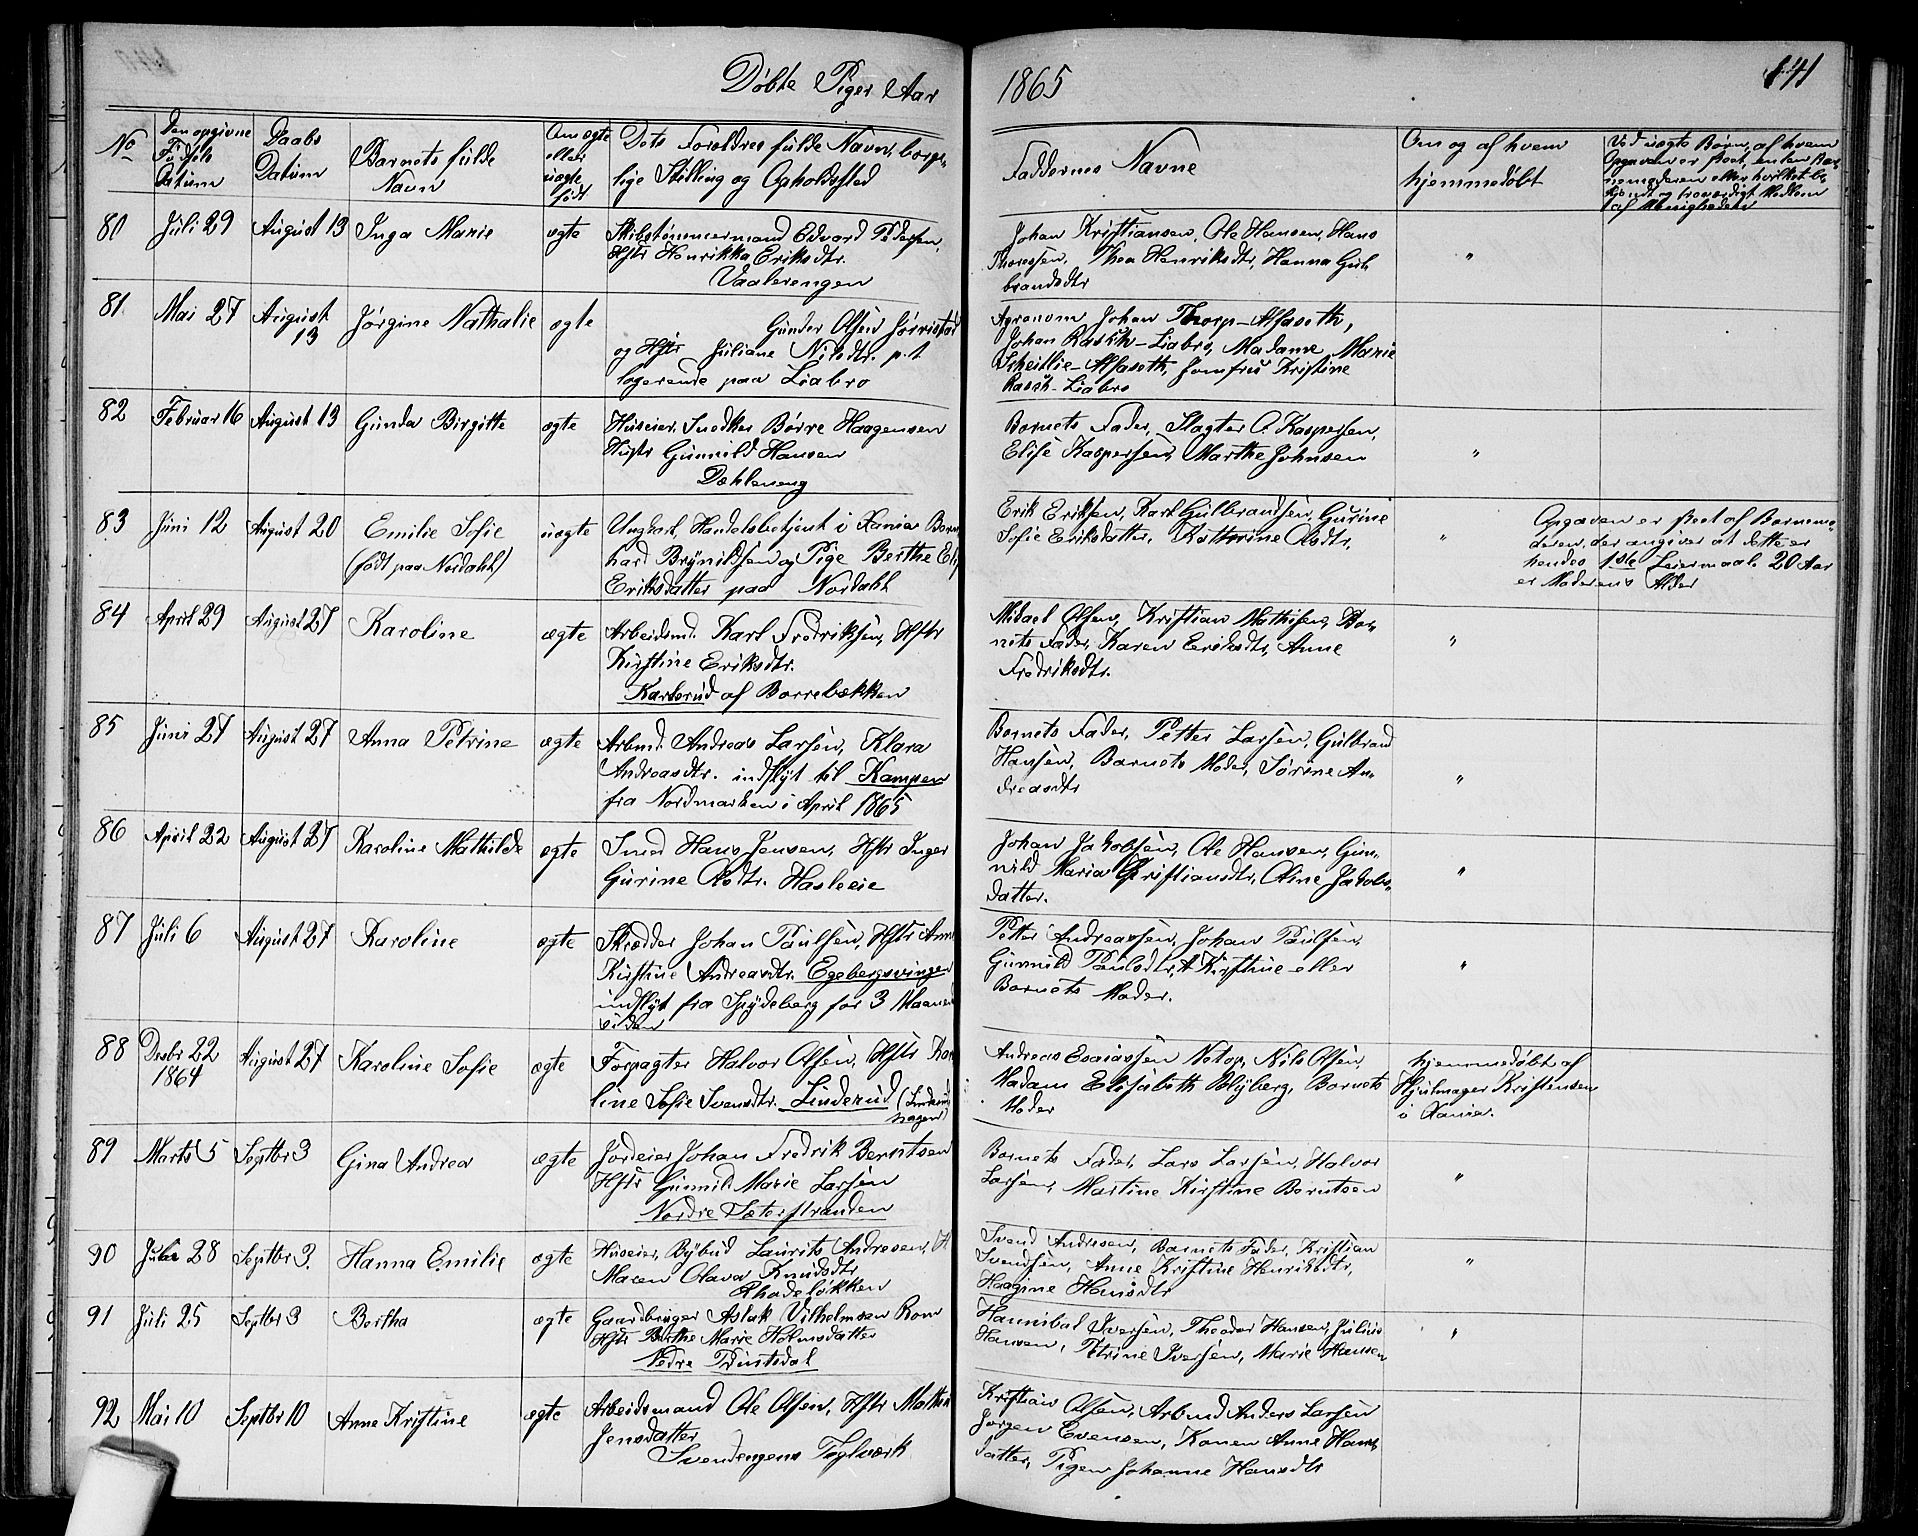 Døbte Piger Aar 1865
141
No
Den opgivne Fødsels Datum
Daabs Datum
Barnets fulde Navn
Om ægte eller uægte født
Dets Forældres fulde Navn, borger-
lige Stilling og Opholdssted
Faddernes Navne
Om og af hvem hjemmedøbt
Ved uægte Børn, af hvem
Opgaven er skeet, enten Bar-
nemoderen eller hvilket be-
kjendt og troværdigt Medlem
af Menigheden
80 Juli 29 August 13 Inga Marie ægte Skibstømmermand Edvard Pedersen,
Hstr Henrikka Eriksdtr.
Vaalerengen
Johan Kristiansen, Ole Hansen, Hans
Thoresen, Thea Henriksdtr, Hanna Gul-
brandsdtr "
81. Mai 27 August 13 Jørgine Nathalie ægte Gunder Olsen
og Hstr Juliane Nilsdtr. p.t.
logerende paa Liabro
Agronom Johan Thorp-Alfaseth,
Johan Rasch-Liabro, Madame Marie
Scheitlie-Alfaseth, Jomfru Kristine
Rasch-Liabro
82 Februar 16 August 13 Gunda Birgitte ægte Huseier, Snedker Børre Haagensen
Hustr Gunnild Hansen
Dæhleneng
Barnets Fader, Slagter O. Kaspersen,
Elise Kaspersen, Marthe Johnsen "
83 Juni 12 August 20 Emilie Sofie
(født paa Nordahl)
uægte Ungkarl, Handelsbetjent i Xania Bern-
hard Brynildsen og Pige Berthe
Eriksdatter paa Nordahl
Erik Eriksen, Karl Gulbrandsen, Gurine
Sofie Eriksdatter, Kathrine Olsdtr, "
Opgaven er skeet af Barnemo-
deren, der angiver at dette er
hendes 1ste Leiermaal. 20 Aar
er Moderens Alder
84 April 29 August 27 Karoline ægte Arbeidsmd. Karl Fredriksen, Hstr
Kirstine Eriksdtr.
Karlsrud af Borrebækken
Mikael Olsen, Kristian Mathisen, Bar-
nets Fader, Karen Eriksdtr, Anne
Fredriksdtr. "
85 Juni 27 August 27 Anna Petrine ægte Arbmd. Andreas Larsen, Klara
Andreasdtr. indflyt til Kampen
fra Nordmarken i April 1865
Barnets Fader, Petter Larsen, Gulbrand
Hansen, Barnets Moder, Sørine An-
dreasdtr "
86 April 22 August 27 Karoline Mathilde ægte Smed Hans Jensen, Hstr Inger
Gurine Olsdtr. Hasleeie
Johan Jakobsen, Ole Hansen, Gun-
nild Maria Kristiansdtr, Oline Jakobs-
datter. "
87 Juli 6 August 27 Karoline ægte Skrædder Johan Paulsen, Hstr Anne
Kirstine Andreasdtr. Egebergsvingen
indflyt fra Spydeberg for 3 Maaneder
siden
Petter Andreassen, Johan Paulsen,
Gunnild Paulsdtr, A Kirstine eller
Barnets Moder. "
88 Desbr 22
1864
August 27 Karoline Sofie ægte Forpagter Halvor Olsen, Hstr Karo-
line Sofie Svensdtr. Linderud (Linderud-
hagen)
Andreas Esaiassen Notop, Nils Olsen,
Madam Elisabeth Blyberg, Barnets
Moder
hjemmedøbt af
Hjulmager Kristensen
i Xania.
89 Marts 5 Septbr 3 Gina Andrea ægte Jordeier Johan Fredrik Berntsen
Hstr Gunnild Marie Larsen
Nordre Sæterstranden
Barnets Fader, Lars Larsen, Halvor
Larsen, Martine Kirstine Berntsen "
90 28 Septbr 3. Hanna Emilie ægte Huseier, Bybud Laurits Andresen, H
Maren Olava Knudsdtr
Rhodeløkken
Svend Andresen, Barnets Fader, Kristian
Svendsen, Anne Kristine Henriksdtr,
Haagine Hansdtr "
91 Juli 25 Septbr 3 Bertha ægte Gaardbruger Aslak Vilhelmsen Rom
Hstr Berthe Marie Holmsdatter
Nedre Prinsdal
Hannibal Iversen, Theodor Hansen, Julius
Hansen, Petrine Iversen, Marie Hansen "
92 Mai 10 Septbr 10 Anne Kristine ægte Arbeidsmand Ole Olsen, Hstr Mathea
Jensdatter
Svendengens Teglværk
Kristian Olsen, Arbmd Anders Larsen
Jørgen Evensen, Konen Anne Hans-
datter, Pigen Johanne Hansdtr